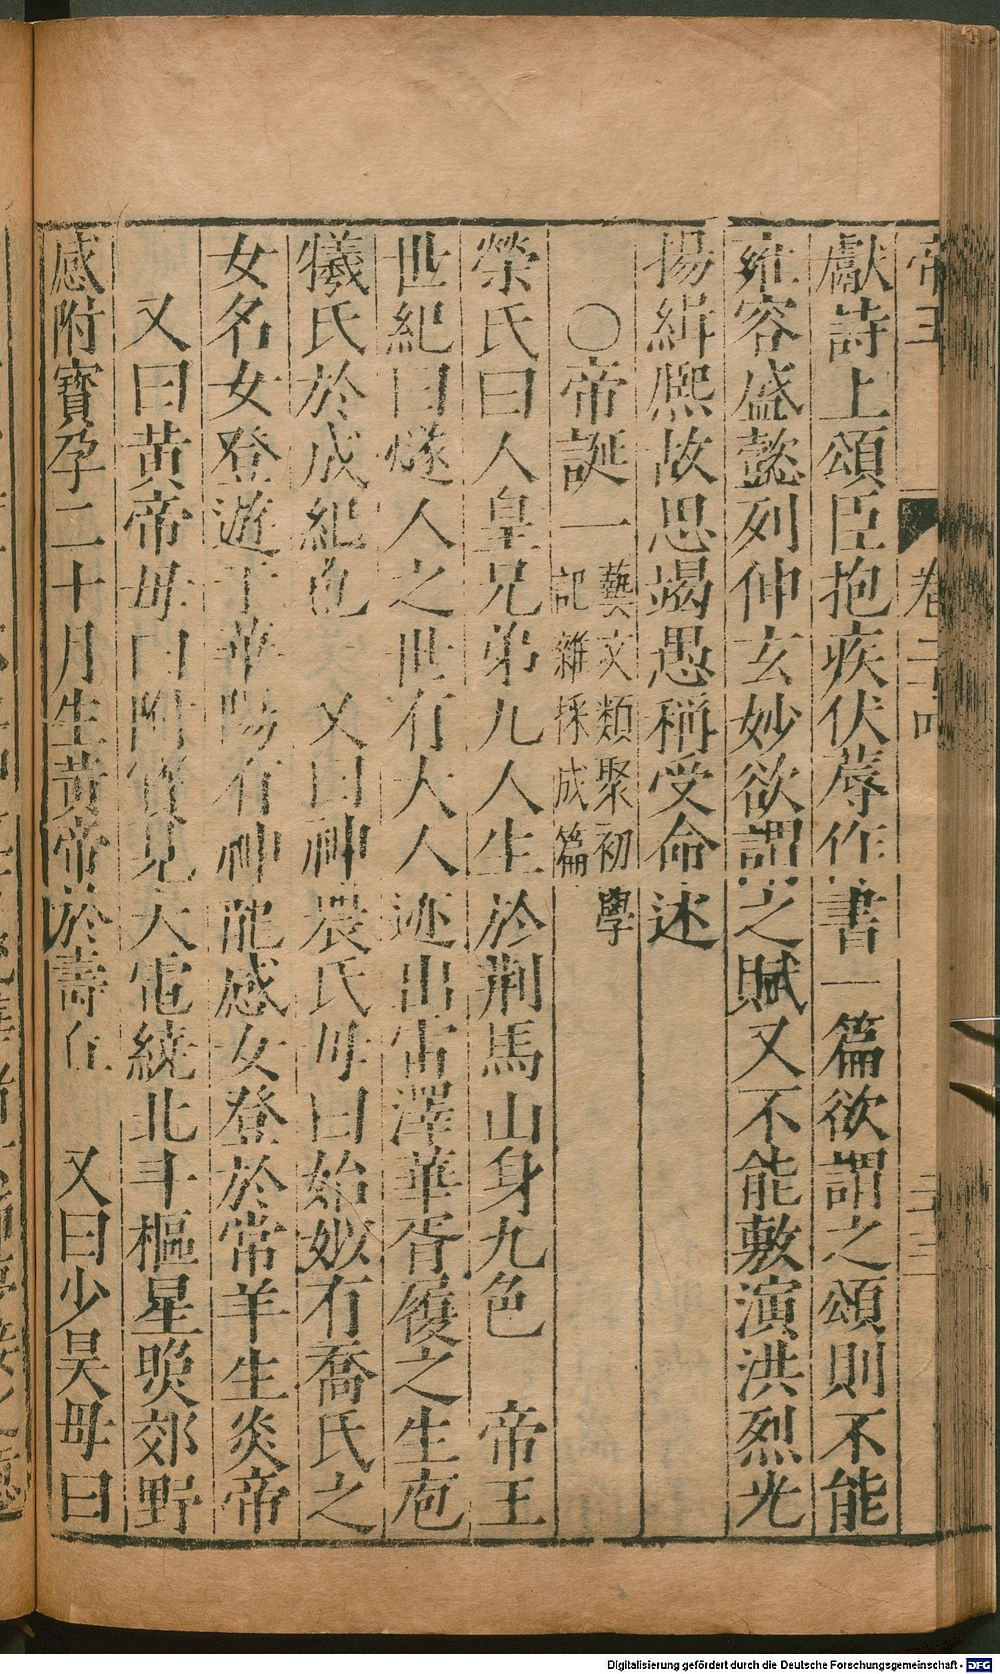 帝王 卷二十四
獻詩上頌臣抱疾伏蓐作書一篇欲謂之頌則不能
雍容盛懿列伸玄妙欲謂之賦又不能敷演洪烈光
揚緝熈故思竭愚稱受命述
○帝誕一藝文類聚初學
記雜採成篇
榮氏曰人皇兄弟九人生於荆馬山身九色 帝王
世紀曰燧人之世有大人迹出雷澤華胥履之生庖
犧氏於成紀也 又曰神農氏母曰始姒有喬氏之
女名女登遊于華陽有神龍感女登於常羊生炎帝
又曰黄帝母曰附寳見大電繞北斗樞星暎郊野
感附寳孕二十月生黄帝於壽丘 又曰少昊母曰
Digitalisierung gefördert durch die Deutsche Forschungsgemeinschaft - DFG